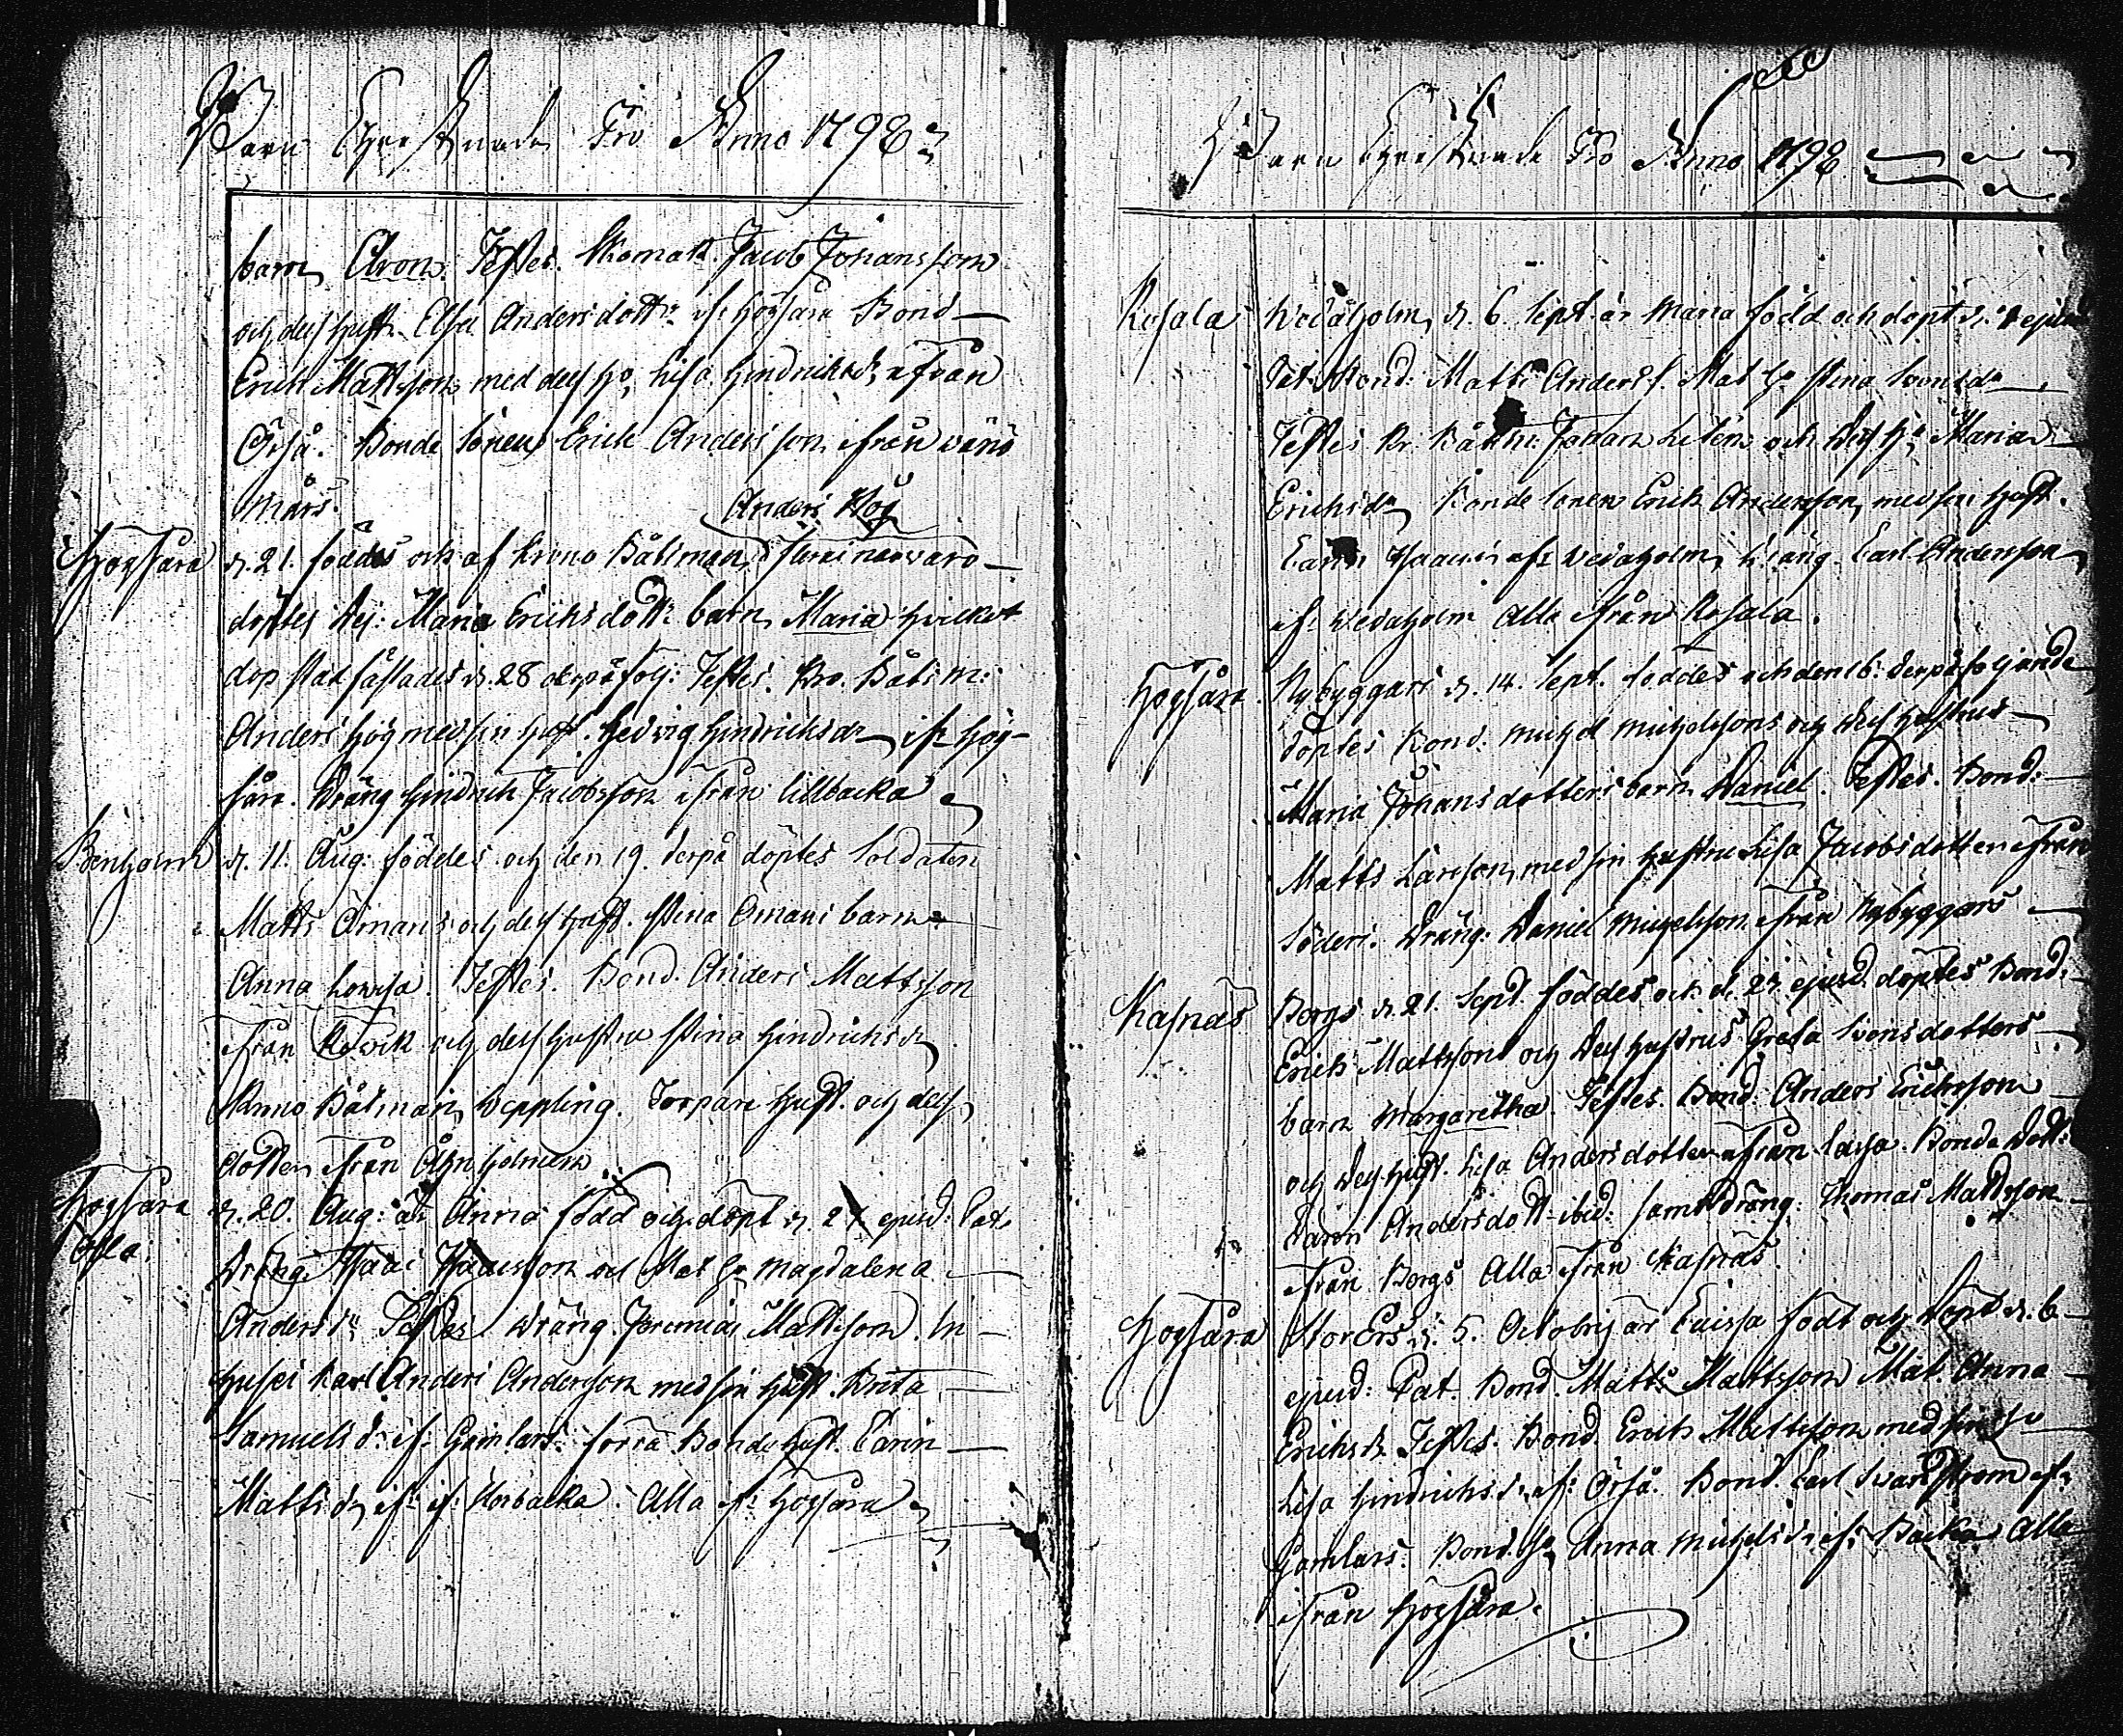 Barn Christnade Pro Anno 1798
barn Aron. Testes. Skomak. Jacob Johansson
och dess hust. Elsa Andersdottr if. Högsara Bond
Erich Mattsson med dess ho, Lisa Hindriksdr ifrån
Örså. Bonde Sonen Erich Andersson ifrån Wänö
Mårs.
Anders Hög
Högsara d. 21. föddes och af krono Båtsman
döptes Maria Erichsdottr barn Maria hvilket
dop stadfästades d. 28 derpåfölj: Testes. Kro. Båtsm:
Anders Hög med sin hust. Hedvig Hindrichsdr if. Hög-
sara. Dräng Hindrich Jacobsson ifrån Lillbacka
Bönholm d. 11. Aug: föddes och den 19. derpå döptes Soldaten
Matts Ömans och dess hust. Stina Ömans barn
Anna Lowisa. Testes. Bond. Anders Mattsson
ifrån och dess hustru Stina Hindrichsdr
Krono Båtsman Weppling. Torpare hust. och dess
dotter ifrån
Högsara d. 20. Aug: är Anna född och döpt d. 27 ejusd: Pat.
Dräng Isaac Isaacsson och Mat ho Magdalena
Andersdr Testes Dräng. Jeremias Mattsson. In-
hyses karl Anders Andersson med sin hust. Brita
Samuelsdr if: Gamlars. förra Bonde hust. Carin
Mattsdr if: if: Norbacka. Alla if: Högsara
Barn Christnade Pro Anno 1798
Rosala Wedaholm, d. 6. Sept. är Maria född och döpt d. ejusd
Pat Bond: Matts Anders s. Mat ho Stina Svensdr
Testes Kr. Båtsm: Johan Liten och dess ho Maria
Erichsdr Bonde Sonen Erich Andersson, med sin hust.
Carin Isaacsdr if: Wedaholm, Dräng. Carl Andersson
if. Wedaholm Alla ifrån Rosala.
Högsara Nybyggars d. 14. Sept. föddes och den 16: derpåföljande
döptes Bond: Michel Michelssons och dess hustrus
Maria Johansdotters barn Daniel. Testes. Bond:
Matts Larsson, med sin hustru Lisa Jacobsdotter ifrån
Söders. Dräng: Daniel Michelsson ifrån Nybyggars
Kasnäs Borgs d. 21. Sept. föddes och d. 23 ejusd. döptes Bond:
Erich Mattsson och dess hustrus Greta Svensdotters
barn Margaretha. Testes. Bond: Anders Erichsson
och dess hust. Lisa Andersdotter ifrån Bonde Dott:
Carin Andersdott ibid: samt dräng: Thomas Mattsson
ifrån Borgs Alla ifrån Kasnäs.
Högsara StorErs d. 5. Octobris är Caissa född och döpt d. 6
ejusd: Pat. Bond. Matts Mattsson Mat Anna
Erichsdr Testes. Bond. Erich Mattsson med sin ho
Lisa Hindrichsdr if: Örså. Bond. Carl Svärdström if:
Gamlars. Bond. ho Anna Michelsdr if: Backa Alla
ifrån Högsara.